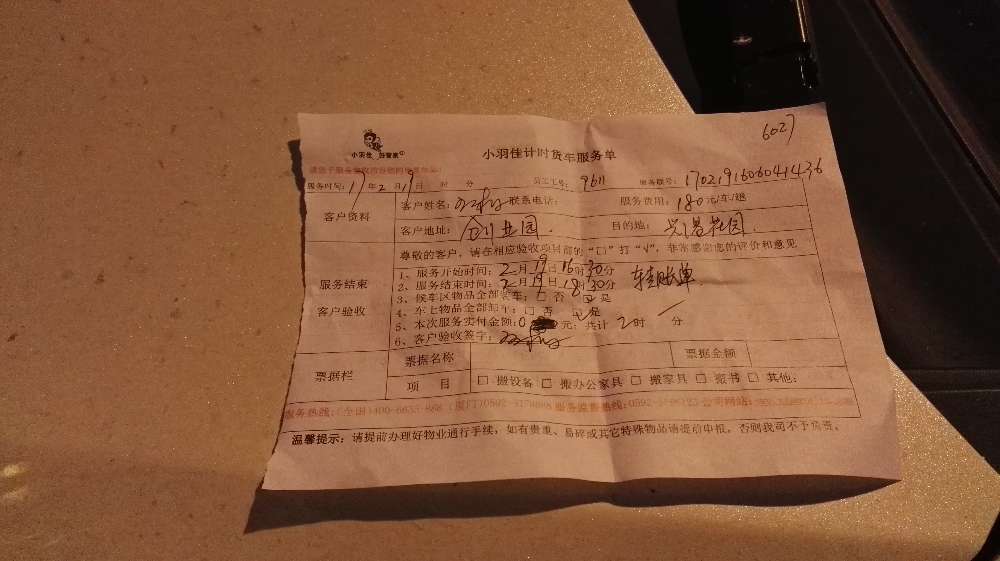 6027
小羽佳 好管家
小羽佳计时货车服务单
服务时间：17年2月19日 时 分 员工工号：9611 服务联号：1702191606041436
客户资料 客户姓名： 联系电话： 服务费用：180元/车/趟
客户地址：创业园 目的地：兴港花园
尊敬的客户，请在相应验收项目前的“□”打“√”，非常感谢您的评价和意见
服务结束
客户验收
1、服务开始时间：2月19日16时30分
2、服务结束时间：2月19日18时30分 转账单
3、候车区物品全部装车：□ 否 □ 是
4、车上物品全部卸车：□ 否 □ 是
5、本次服务实付金额：0 元；共计 2 时 分
6、客户验收签字：
票据栏 票据名称 票据金额
项 目 □ 搬设备 □ 搬办公家具 □ 搬家具 □ 搬书 □ 其他：
服务热线：(全国)400-6633-888 (厦门)0592- 服务监督热线：0592- 公司网站：
温馨提示：请提前办理好物业通行手续，如有贵重、易碎或其它特殊物品请提前申报，否则我司不予负责。